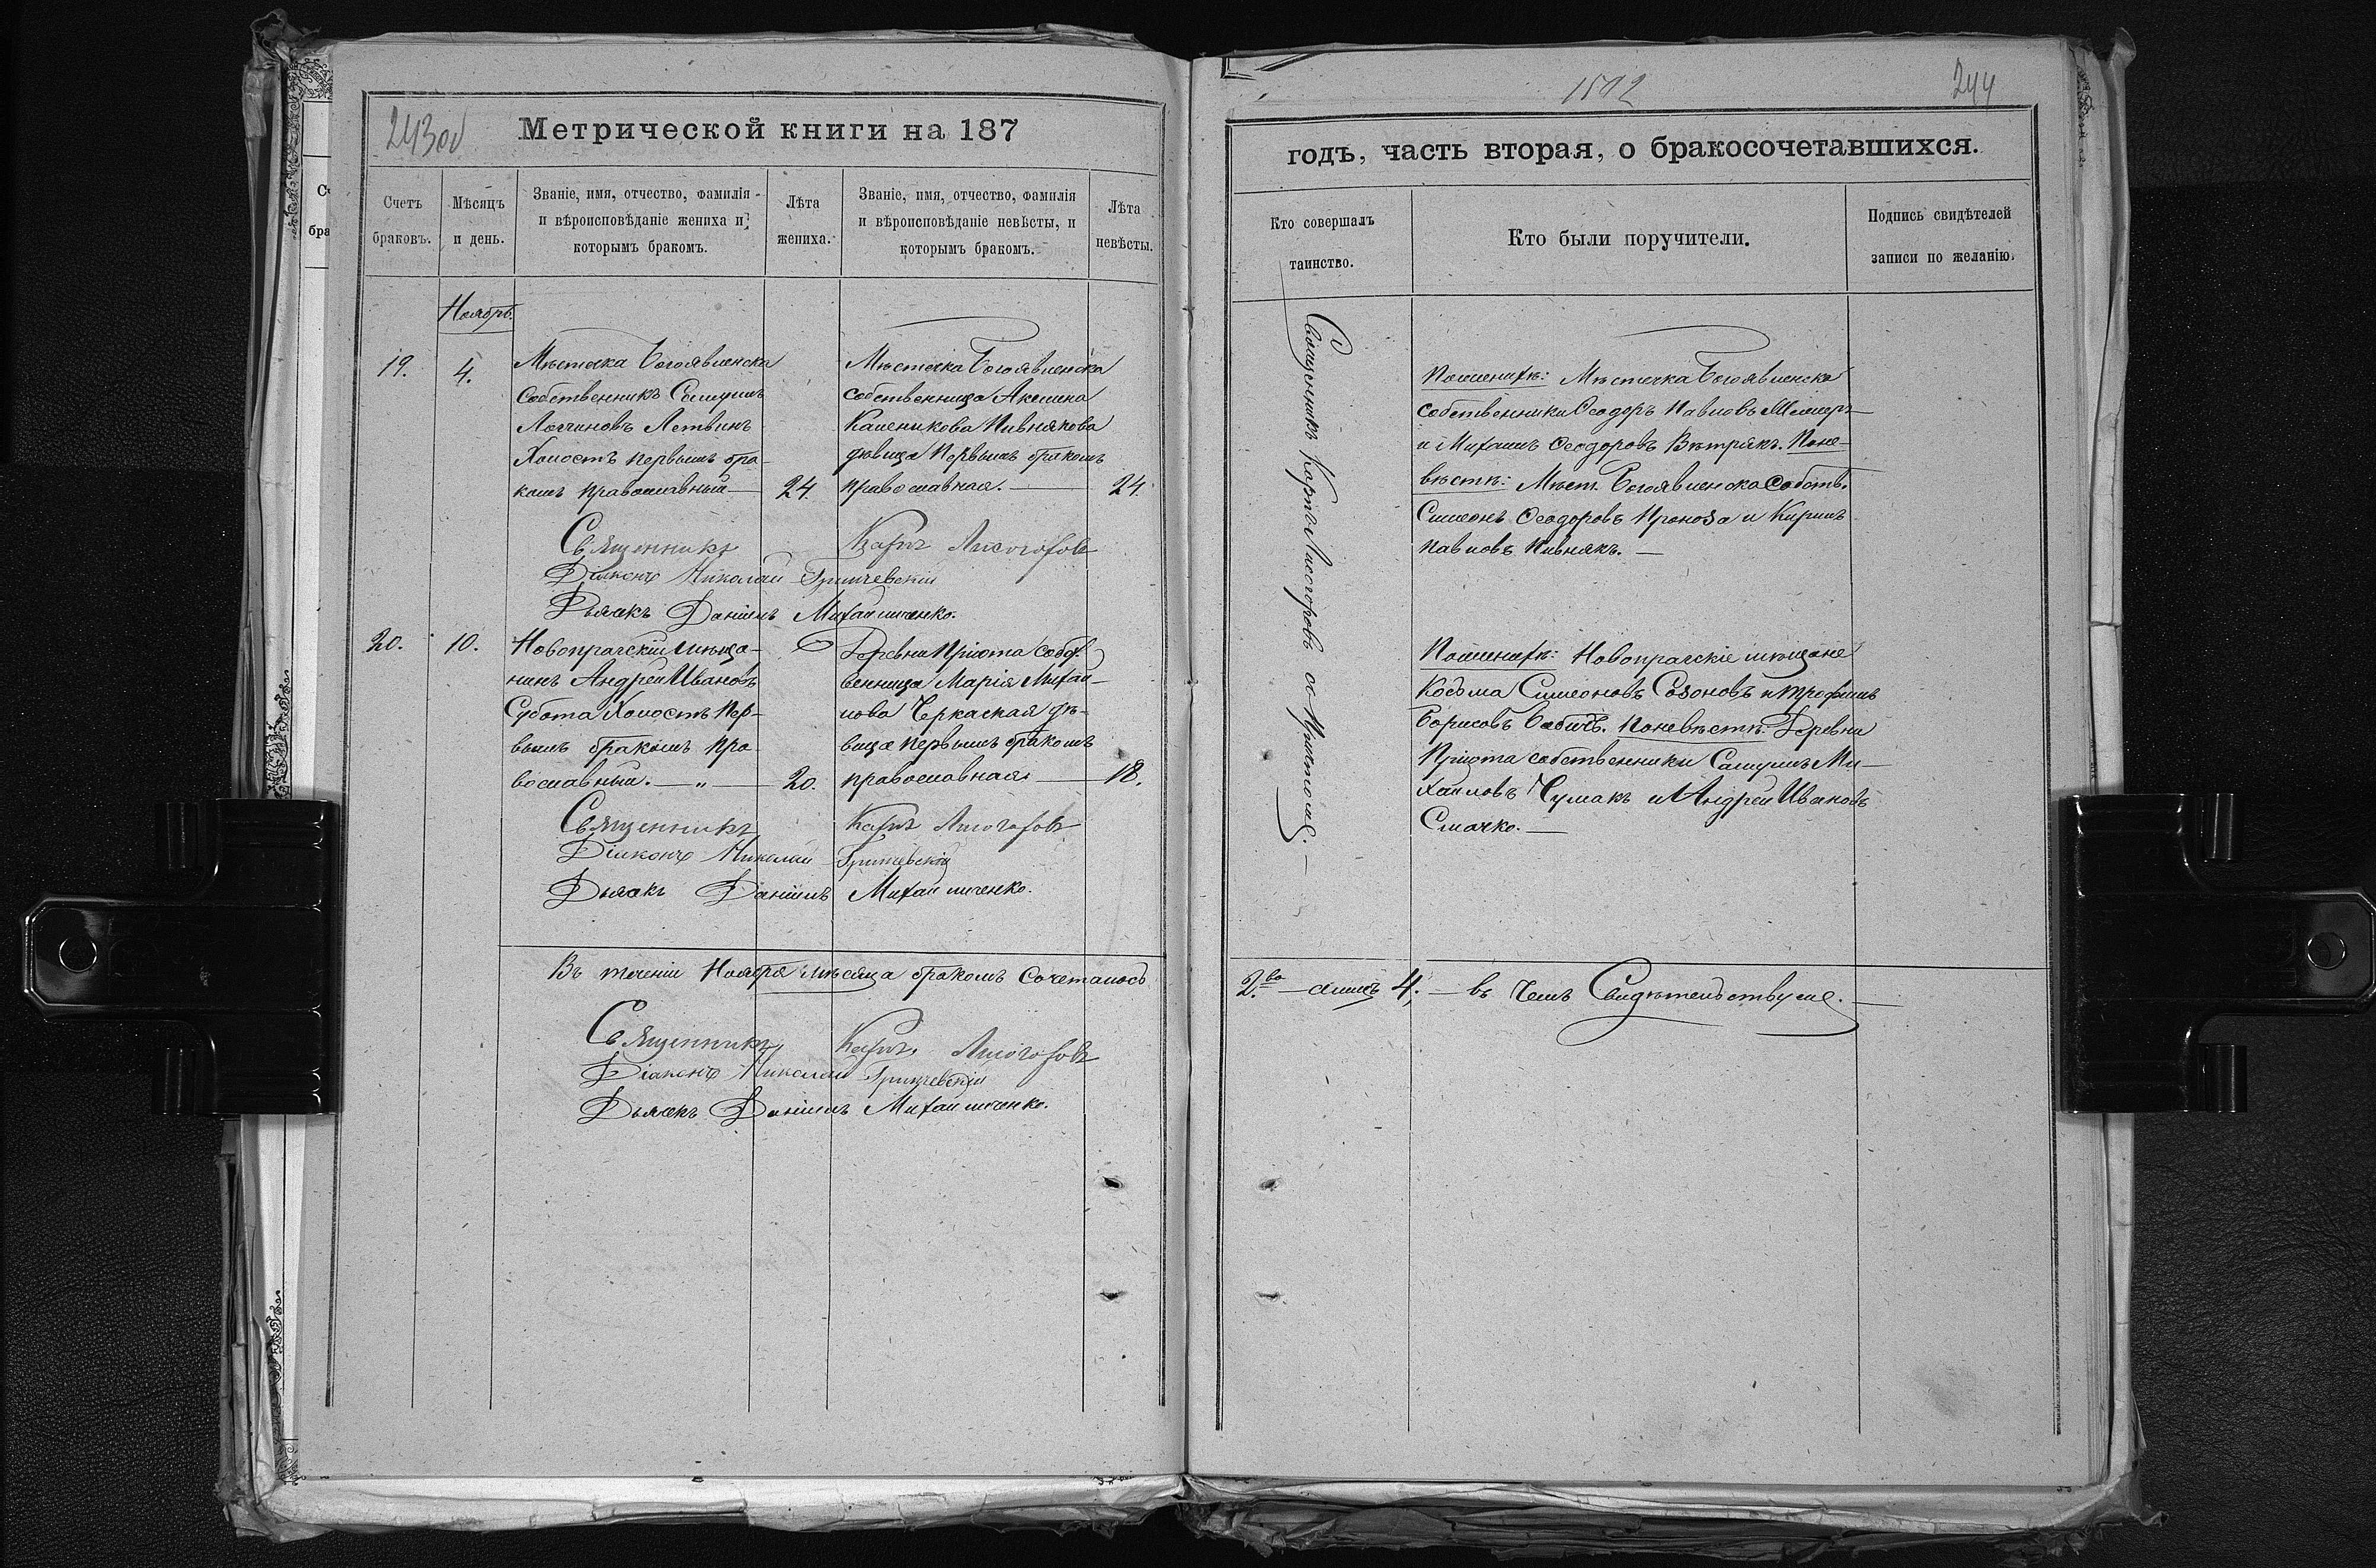 243об
Метрической книги на 187
Счетъ браковъ.
Мѣсяцъ и день.
Званіе, имя, отчество, фамилія
и вѣроисповѣданіе жениха и
которымъ бракомъ.
Лѣта жениха.
Званіе, имя, отчество, фамилія
и вѣроисповѣданіе невѣсты, и
которымъ бракомъ.
Лѣта невѣсты.
Ноябрь.
19.
4.
Мѣстечка Богоявленска
собственникъ Самуилъ
Логгиновъ Летвинъ
Холостъ первымъ бра-
комъ православный
24.
Мѣстечка Богоявленска
собственница Акилина
Каленикова Пивнякова
дѣвица первымъ бракомъ
православная.
24.
Священникъ Карпъ Лисогоровъ
Діяконъ Николай Гришевскій
Дьячекъ Даніилъ Михайличенко.
20.
10.
Новопражскій мѣща-
нинъ Андрей Ивановъ
Субота Холостъ пер-
вымъ бракомъ пра-
вославный. — „ —
20.
Деревни Пріюта собст-
венница Марія Михай-
лова Черкаская дѣ-
вица первымъ бракомъ
православная.
18.
Священникъ Карпъ Лисогоровъ
Діяконъ Николай Гришевскій
Дьячекъ Даніилъ Михайличенко.
Въ теченіи Ноября мѣсяца бракомъ сочеталось
Священникъ Карпъ Лисогоровъ
Діаконъ Николай Гришевскій
Дьячекъ Даніилъ Михайличенко.
1502
244
годъ, часть вторая, о бракосочетавшихся.
Кто совершалъ
таинство.
Кто были поручители.
Подпись свидѣтелей
записи по желанію.
Священникъ Карпъ Лисогоровъ съ Причтомъ.
По женихѣ: Мѣстечка Богоявленска
собственники Ѳеодоръ Павловъ
и Михаилъ Ѳеодоровъ Вѣтрякъ. По не-
вѣстѣ: Мѣст. Богоявленска собств.
Симеонъ Ѳеодоровъ Проноза и Кирилъ
Павловъ Пивнякъ. —
По женихѣ: Новопражскіе мѣщане
Козьма Симеоновъ Созоновъ и Трофимъ
Борисовъ Бабичъ. По невѣстѣ: Деревни
Пріюта собственники Самуилъ Ми-
хайловъ Чумакъ и Андрей Ивановъ
Смачко. —
2.во — а лицъ 4; — въ чемъ Свидѣтельствуемъ. —